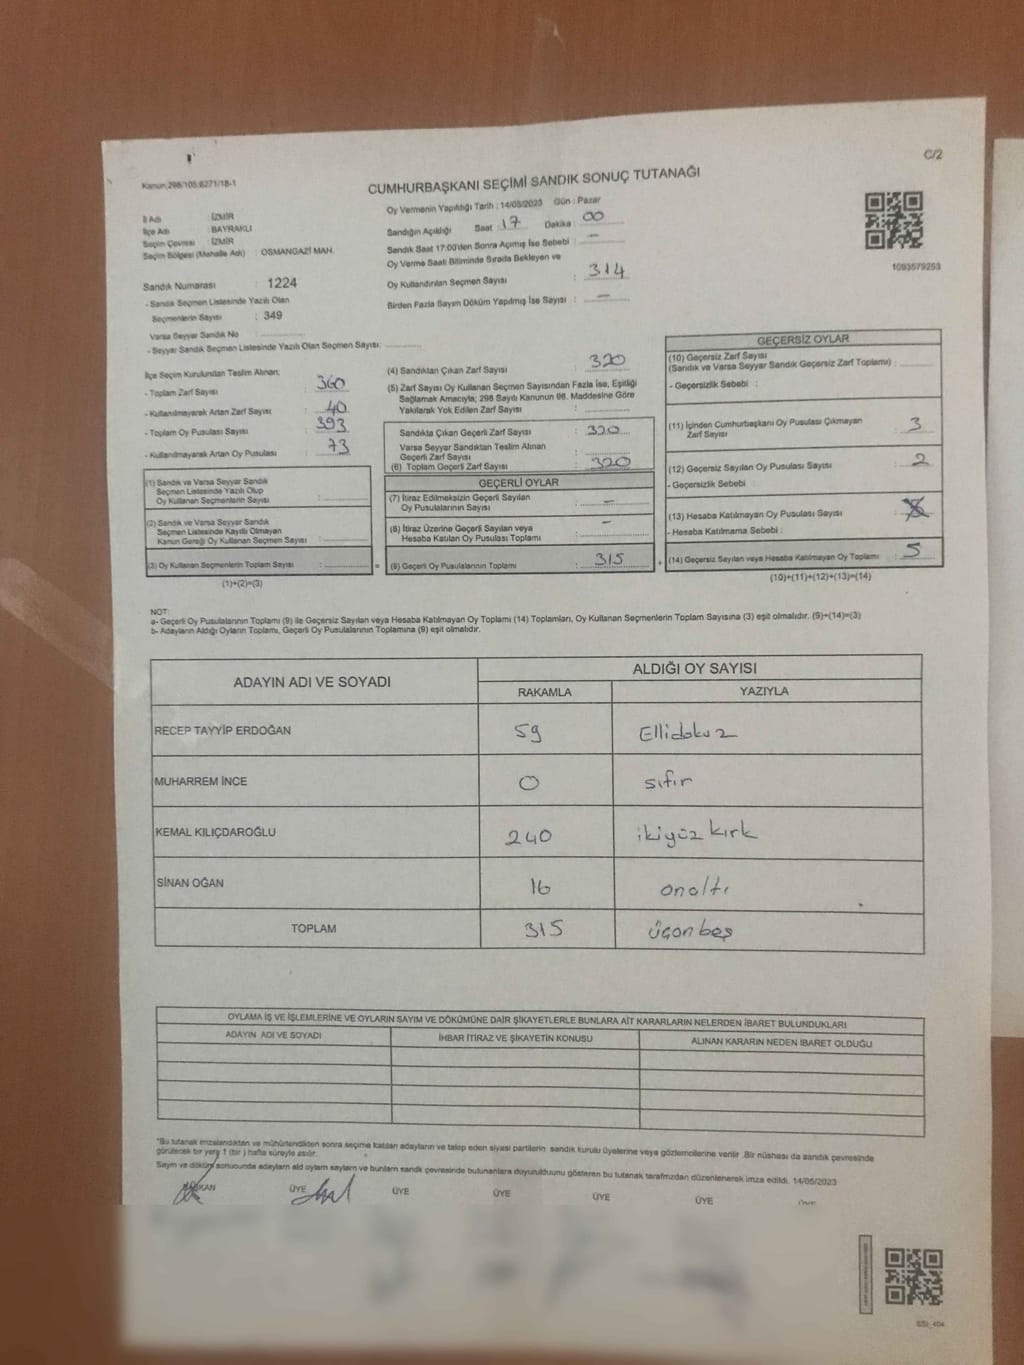 C/2
Kanun;298/105;6271/18-1
CUMHURBAŞKANI SEÇİMİ SANDIK SONUÇ TUTANAĞI
İl Adı : İZMİR
İlçe Adı : BAYRAKLI
Seçim Çevresi : İZMİR
Seçim Bölgesi (Mahalle Adı) : OSMANGAZİ MAH.
Sandık Numarası : 1224
- Sandık Seçmen Listesinde Yazılı Olan
Seçmenlerin Sayısı : 349
Varsa Seyyar Sandık No :
- Seyyar Sandık Seçmen Listesinde Yazılı Olan Seçmen Sayısı:
Oy Vermenin Yapıldığı Tarih : 14/05/2023 Gün : Pazar
Sandığın Açıldığı Saat : 17 Dakika : 00
Sandık Saat 17:00'den Sonra Açmış İse Sebebi : —
Oy Verme Saati Bitiminde Sırada Bekleyen ve
Oy Kullandırılan Seçmen Sayısı : 314
Birden Fazla Sayım Döküm Yapılmış İse Sayısı : —
1093579253
İlçe Seçim Kurulundan Teslim Alınan;
- Toplam Zarf Sayısı : 360
- Kullanılmayarak Artan Zarf Sayısı : 40
- Toplam Oy Pusulası Sayısı : 393
- Kullanılmayarak Artan Oy Pusulası : 73
(1) Sandık ve Varsa Seyyar Sandık
Seçmen Listesinde Yazılı Olup
Oy Kullanan Seçmenlerin Sayısı :
(2) Sandık ve Varsa Seyyar Sandık
Seçmen Listesinde Kayıtlı Olmayan
Kanun Gereği Oy Kullanan Seçmen Sayısı :
(3) Oy Kullanan Seçmenlerin Toplam Sayısı :
(1)+(2)=(3)
(4) Sandıktan Çıkan Zarf Sayısı : 320
(5) Zarf Sayısı Oy Kullanan Seçmen Sayısından Fazla İse, Eşitliği
Sağlamak Amacıyla; 298 Sayılı Kanunun 98. Maddesine Göre
Yakılarak Yok Edilen Zarf Sayısı :
Sandıkta Çıkan Geçerli Zarf Sayısı : 320
Varsa Seyyar Sandıktan Teslim Alınan
Geçerli Zarf Sayısı :
(6) Toplam Geçerli Zarf Sayısı : 320
GEÇERLİ OYLAR
(7) İtiraz Edilmeksizin Geçerli Sayılan
Oy Pusulalarının Sayısı : —
(8) İtiraz Üzerine Geçerli Sayılan veya
Hesaba Katılan Oy Pusulası Toplamı : —
= (9) Geçerli Oy Pusulalarının Toplamı : 315
GEÇERSİZ OYLAR
(10) Geçersiz Zarf Sayısı
(Sandık ve Varsa Seyyar Sandık Geçersiz Zarf Toplamı) :
- Geçersizlik Sebebi :
(11) İçinden Cumhurbaşkanı Oy Pusulası Çıkmayan
Zarf Sayısı : 3
(12) Geçersiz Sayılan Oy Pusulası Sayısı : 2
- Geçersizlik Sebebi :
(13) Hesaba Katılmayan Oy Pusulası Sayısı :
- Hesaba Katılmama Sebebi :
+ (14) Geçersiz Sayılan veya Hesaba Katılmayan Oy Toplamı : 5
(10)+(11)+(12)+(13)=(14)
NOT:
a- Geçerli Oy Pusulalarının Toplamı (9) ile Geçersiz Sayılan veya Hesaba Katılmayan Oy Toplamı (14) Toplamları, Oy Kullanan Seçmenlerin Toplam Sayısına (3) eşit olmalıdır. (9)+(14)=(3)
b- Adayların Aldığı Oyların Toplamı, Geçerli Oy Pusulalarının Toplamına (9) eşit olmalıdır.
ADAYIN ADI VE SOYADI ALDIĞI OY SAYISI
RAKAMLA YAZIYLA
RECEP TAYYİP ERDOĞAN 59 Ellidokuz
MUHARREM İNCE 0 sıfır
KEMAL KILIÇDAROĞLU 240 ikiyüz kırk
SİNAN OĞAN 16 onaltı
TOPLAM 315 üçonbeş
OYLAMA İŞ VE İŞLEMLERİNE VE OYLARIN SAYIM VE DÖKÜMÜNE DAİR ŞİKAYETLERLE BUNLARA AİT KARARLARIN NELERDEN İBARET BULUNDUKLARI
ADAYIN ADI VE SOYADI İHBAR İTİRAZ VE ŞİKAYETİN KONUSU ALINAN KARARIN NEDEN İBARET OLDUĞU
"Bu tutanak imzalandıktan ve mühürlendikten sonra seçime katılan adayların ve talep eden siyasi partilerin sandık kurulu üyelerine veya gözlemcilerine verilir .Bir nüshası da sandık çevresinde
görülecek bir yere 1 (bir ) hafta süreyle asılır.
Sayım ve döküm sonucunda adayların aldı oyların sayıları ve bunların sandık çevresinde bulunanlara duyurulduunu gösteren bu tutanak tarafımzdan düzenlenerek imza edildi. 14/05/2023
BAŞKAN ÜYE ÜYE ÜYE ÜYE ÜYE